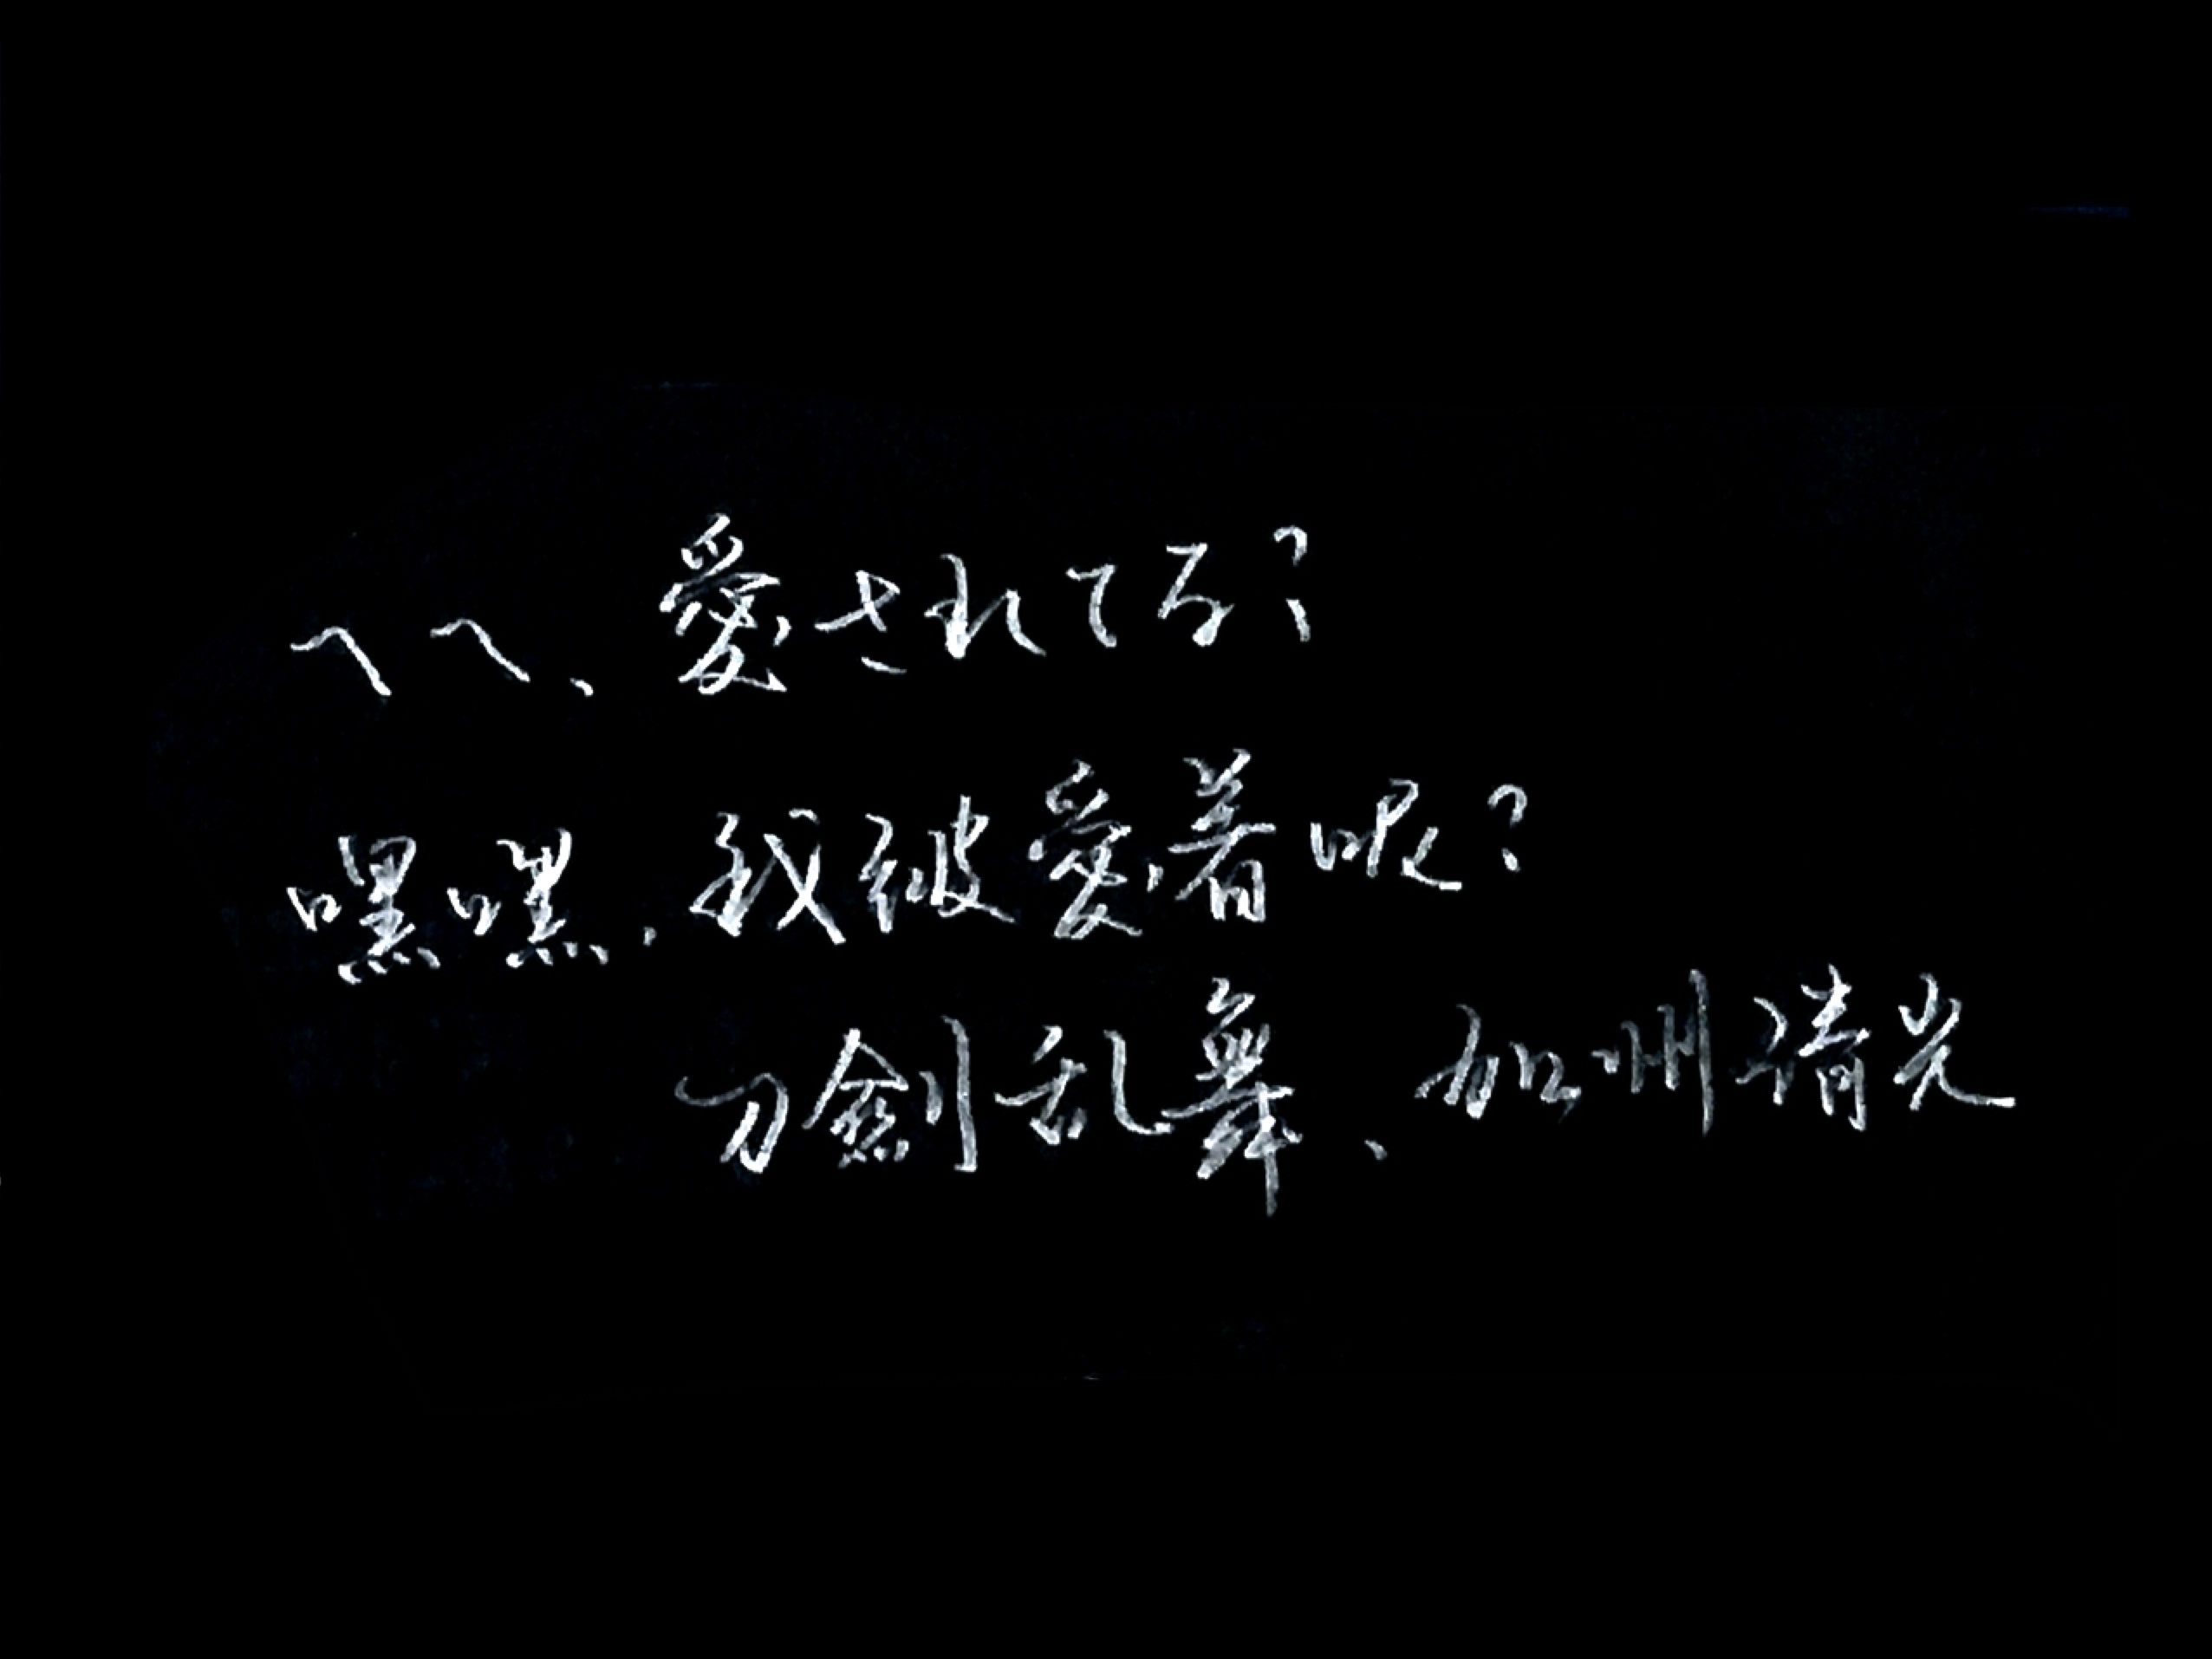 へへ、愛されてる?
嘿嘿,我被愛著呢?
刀劍乱舞、加州清光